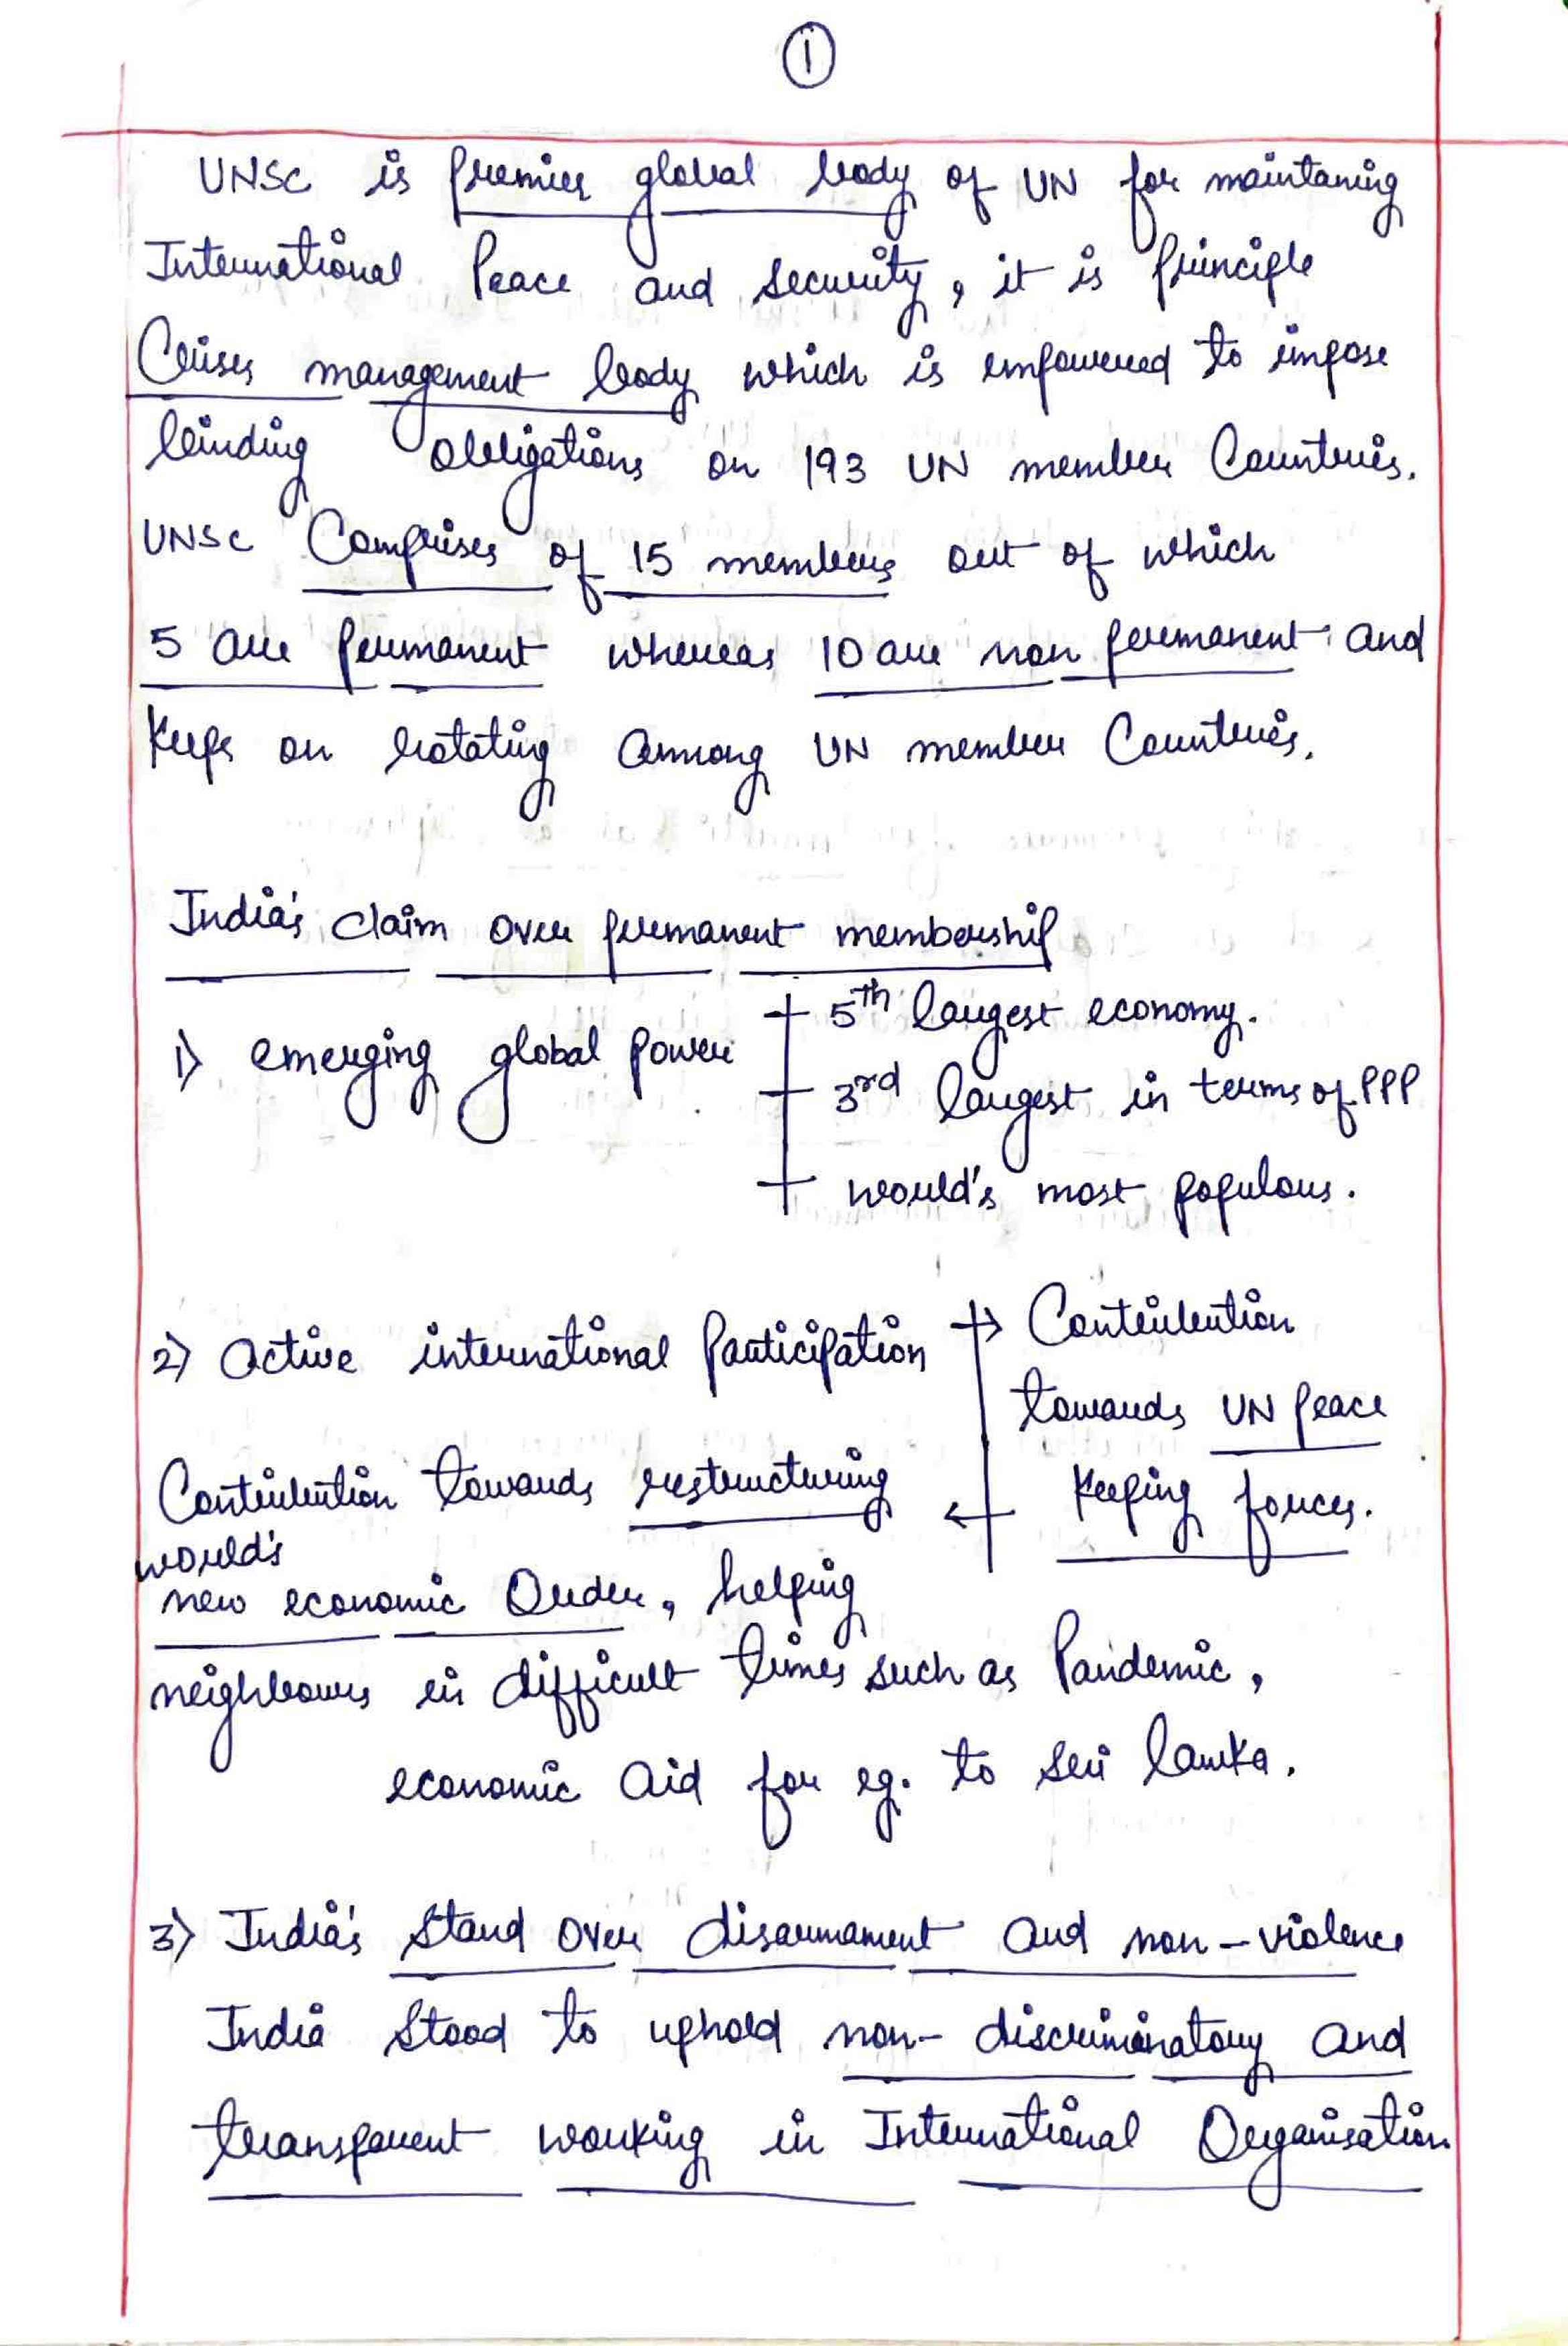 1
UNSC is premier global body of UN for maintaning
International Peace and security, it is principle
Crises management body which is empowered to impose
binding obligations on 193 UN member Countries.
UNSC Comprises of 15 members out of which
5 are permanent whereas 10 are non permanent and
keeps on rotating among UN member Countries.
India's claim over permanent membership
1) emerging global power
5th largest economy.
3rd largest in terms of PPP
world's most populous.
2) Active international Participation → Contribution
towards UN peace
keeping forces.
Contribution towards restructuring ←
world's
new economic Order, helping
neighbours in difficult times such as Pandemic,
economic aid for eg. to Sri lanka.
3) India's stand over disarmament and non-violence
India stood to uphold non-discriminatory and
transparent working in International Organisation